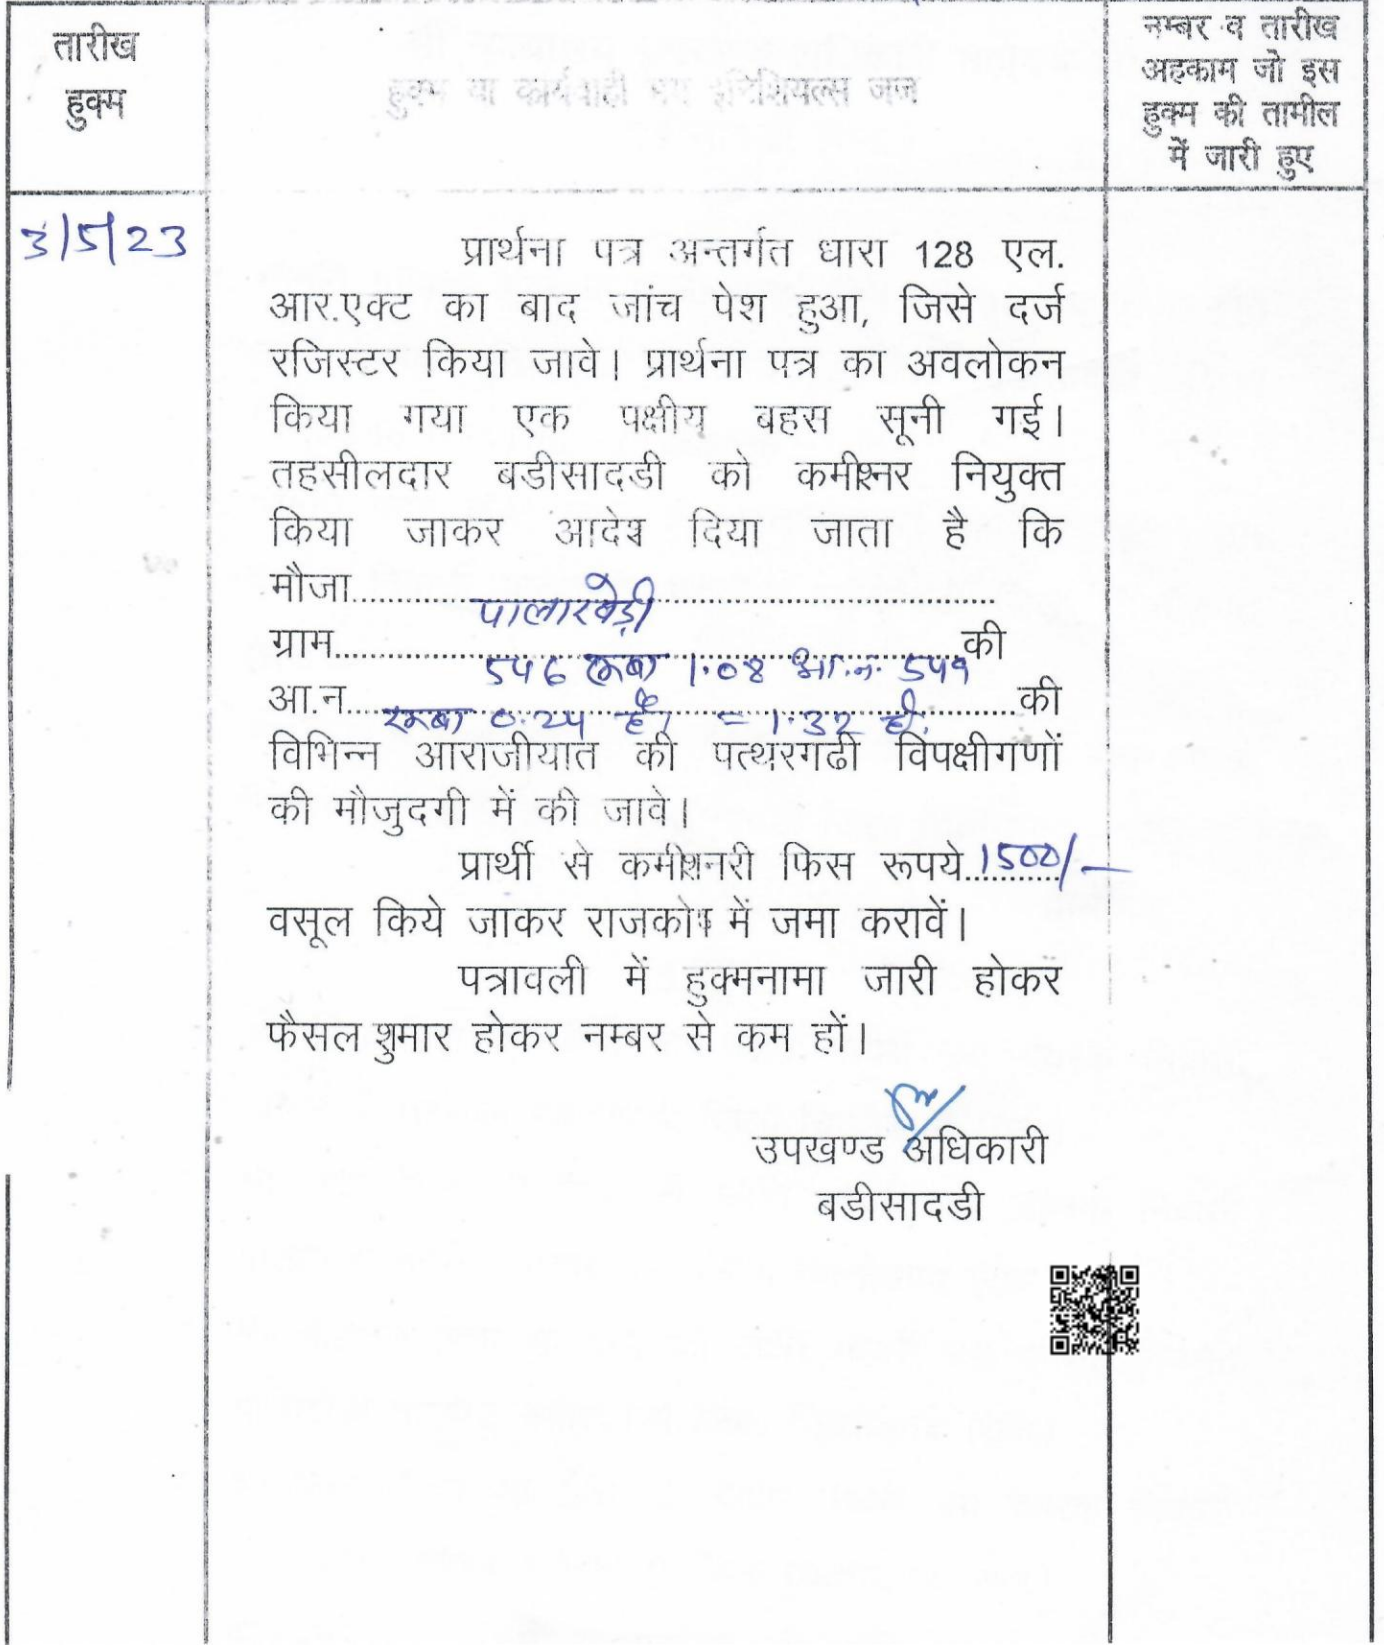 तारीख
हुक्म
हुक्म या कार्यवाही मय इनिशियल्स जज
नम्बर व तारीख
अहकाम जो इस
हुक्म की तामील
में जारी हुए
3/5/23
प्रार्थना पत्र अन्तर्गत धारा 128 एल.
आर.एक्ट का बाद जांच पेश हुआ, जिसे दर्ज
रजिस्टर किया जावे। प्रार्थना पत्र का अवलोकन
किया गया एक पक्षीय बहस सूनी गई।
तहसीलदार बडीसादडी को कमीश्नर नियुक्त
किया जाकर आदेश दिया जाता है कि
मौजा
पालाखेड़ी
ग्राम की
546 रकबा 1.08 आ.न. 549
आ.न की
रकबा 0.24 है। = 1.32 है.
विभिन्न आराजीयात की पत्थरगढी विपक्षीगणों
की मौजुदगी में की जावे।
प्रार्थी से कमीशनरी फिस रूपये 1500/-
वसूल किये जाकर राजकोष में जमा करावें।
पत्रावली में हुक्मनामा जारी होकर
फैसल शुमार होकर नम्बर से कम हों।
उपखण्ड अधिकारी
बडीसादडी